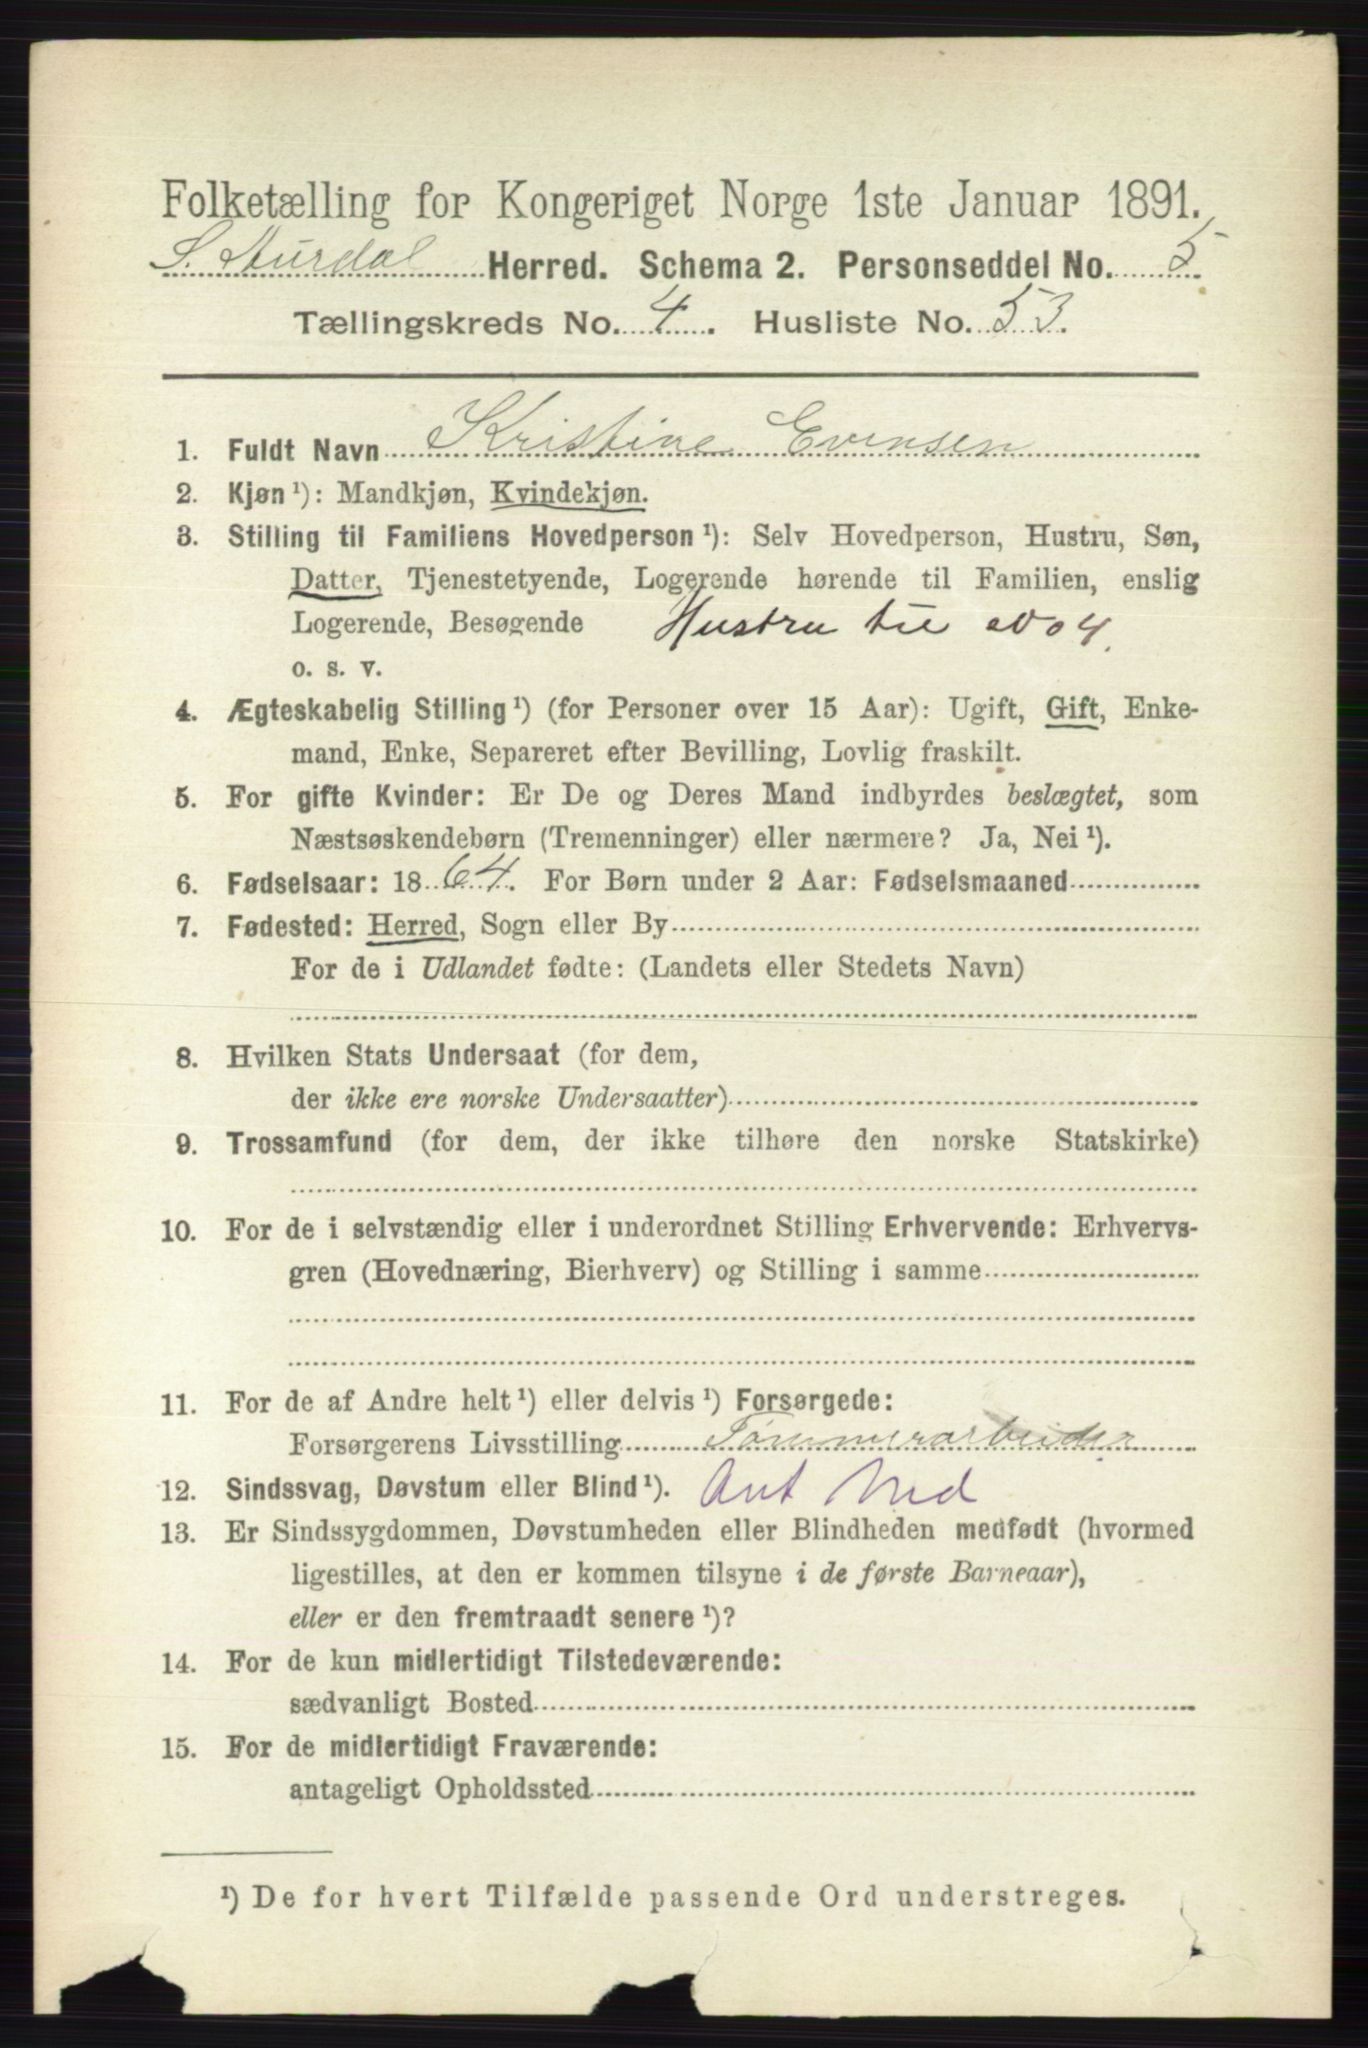 Folketælling for Kongeriget Norge 1ste Januar 1891.
S. Aurdal Herred. Schema 2. Personseddel No. 5
Tællingskreds No. 4. Husliste No. 53.
1. Fuldt Navn Kristine Evensen
2. Kjøn ¹): Mandkjøn, Kvindekjøn.
3. Stilling til Familiens Hovedperson ¹): Selv Hovedperson, Hustru, Søn,
Datter, Tjenestetyende, Logerende hørende til Familien, enslig
Logerende, Besøgende Hustru til No 4.
o. s. v.
4. Ægteskabelig Stilling ¹) (for Personer over 15 Aar): Ugift, Gift, Enke-
mand, Enke, Separeret efter Bevilling, Lovlig fraskilt.
5. For gifte Kvinder: Er De og Deres Mand indbyrdes beslægtet, som
Næstsøskendebørn (Tremenninger) eller nærmere? Ja, Nei ¹).
6. Fødselsaar: 1864. For Børn under 2 Aar: Fødselsmaaned
7. Fødested: Herred, Sogn eller By
For de i Udlandet fødte: (Landets eller Stedets Navn)
8. Hvilken Stats Undersaat (for dem,
der ikke ere norske Undersaatter)
9. Trossamfund (for dem, der ikke tilhøre den norske Statskirke)
10. For de i selvstændig eller i underordnet Stilling Erhvervende: Erhvervs-
gren (Hovednæring, Bierhverv) og Stilling i samme
11. For de af Andre helt ¹) eller delvis ¹) Forsørgede:
Forsørgerens Livsstilling Tømmerarbeider
12. Sindssvag, Døvstum eller Blind ¹).
13. Er Sindssygdommen, Døvstumheden eller Blindheden medfødt (hvormed
ligestilles, at den er kommen tilsyne i de første Barneaar),
eller er den fremtraadt senere ¹)?
14. For de kun midlertidigt Tilstedeværende:
sædvanligt Bosted
15. For de midlertidigt Fraværende:
antageligt Opholdssted
¹) De for hvert Tilfælde passende Ord understreges.